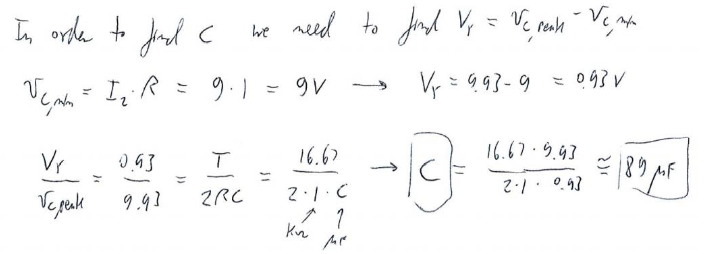 In order to find C we need to find Vr = Vc,peak - Vc,min
Vc,min = I2 · R = 9 · 1 = 9V → Vr = 9.93 - 9 = 0.93V
Vr / Vc,peak = 0.93 / 9.93 = T / 2RC = 16.67 / 2·1·C → C = 16.67 · 9.93 / 2·1 · 0.93 ≅ 89 μF
KΩ μF